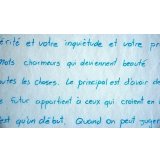 érité et votre inquiétude et votre pr
Mots charmeurs qui deviennent beauté
outes les choses. Le principal est d'avoir de
e futur appartient à ceux qui croient en
est qu'un début. Quand on peut juger